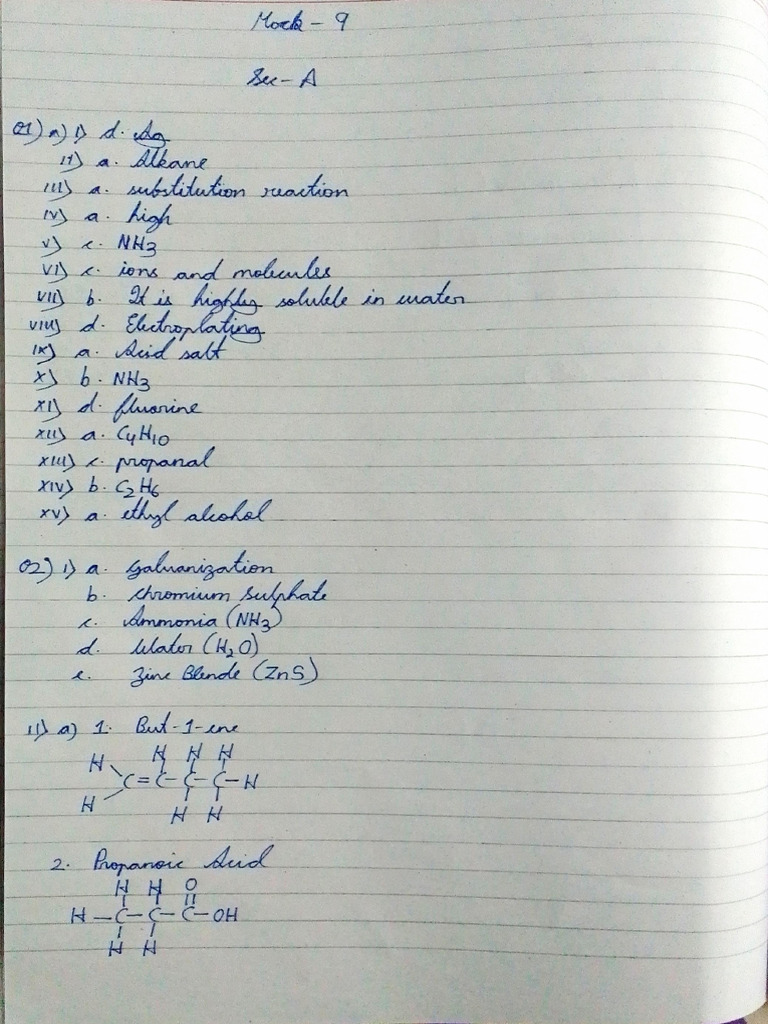 Mock - 9
Sec - A
Q1) a) i) d. Ag
ii) a. Alkane
iii) a. substitution reaction
iv) a. high
v) c. NH3
vi) c. ions and molecules
vii) b. It is highly soluble in water
viii) d. Electroplating
ix) a. Acid salt
x) b. NH3
xi) d. fluorine
xii) a. C4H10
xiii) c. propanal
xiv) b. C2H6
xv) a. ethyl alcohol
Q2) i) a. galvanization
b. chromium sulphate
c. Ammonia (NH3)
d. Water (H2O)
e. Zinc Blende (ZnS)
ii) a) 1. But-1-ene
H H H H
C=C-C-C-H
H H H
2. Propanoic Acid
H H O
H-C-C-C-OH
H H